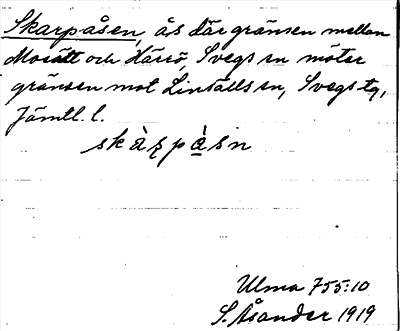 Skarpåsen, ås där gränsen mellan
och Härrö, Svegs sn möter
gränsen mot Linsälls sn, Svegs tg,
Jämtl. l.
skàʂpàsn
Ulma 755:10
S. Åsander 1919